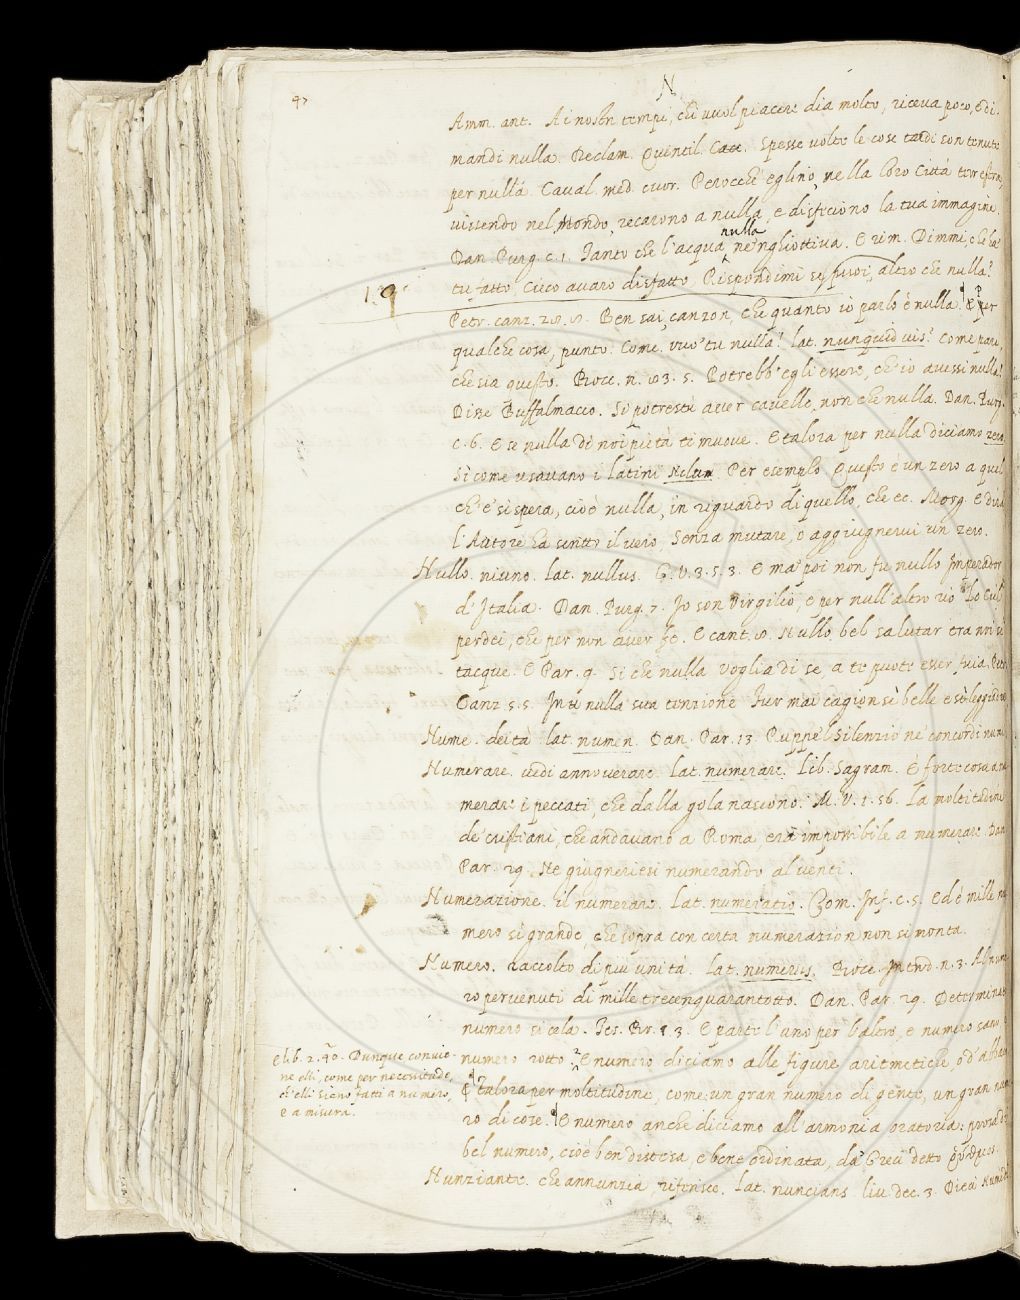 47
N
Amm. ant. A i nostri tempi, chi vuol piacere dia molto, riceva poco, e di-
mandi nulla. Declam. Quintil. Spesse volte le cose tardi son tenute
per nulla. Caval. med. cuor. Perocchè eglino, nella loro Città terrestre,
vivendo nel Mondo, recarono a nulla, e disfeciono la tua immagine.
Dan. Purg. c. 1. Tanto che l'acqua nulla ne 'nghiottiva. E rim. Dimmi, che hai
tu fatto, Cieco avaro disfatto? Rispondimi se puoi, altro che nulla?
19
Petr. canz. Ben sai, canzon, che quanto io parlo è nulla. E per
qualche cosa, punto. Come. vuo' tu nulla? Lat. nunquid vis? Come pare,
che sia questo. Bocc. n. 83. 5. Potrebb' egli essere, ch' io avessi nulla?
Disse Buffalmacco. Sì potrestù aver cavelle, non che nulla. Dan. Purg.
c. 6. E se nulla di noi pietà ti muove. E talora per nulla diciamo zero,
Sì come usavano i latini Per esempio. Questo è un zero a quel
ch' e' si spera, cioè nulla, in riguardo di quello, che ec. Morg. E dirà
l'Autore ha scritto il vero, Senza mutare, o aggiugnervi un zero.
Nullo. niuno. Lat. nullus. G. V. 3. 5. 3. E mai poi non fu nullo Imperador
d'Italia. Dan. Purg. 7. Io son Virgilio, e per null' altro rio Lo Ciel
perdei, che per non aver fe. E cant. 8. Nullo bel salutar tra noi si
tacque. E Par. 9. Sì che nulla voglia di se a te puote esser fuia. Petr.
Canz. 5. 5. In nulla sua tenzione Fur mai cagion sì belle e sì leggiadre
Nume. deità. lat. numen. Dan. Par. 13. Ruppe 'l silenzio ne' concordi numi
Numerare. vedi annoverare. Lat. numerare. Lib. Sagram. E forte cosa a nu-
merare i peccati, che dalla gola nascono. M. V. 1. 56. La moltitudine
de' cristiani, che andavano a Roma, era impossibile a numerare. Dan.
Par. 29. Nè giugneriesi numerando al venti.
Numerazione. il numerare. Lat. numeratio. Com. Inf. c. 5. Ed è mille nu-
mero sì grande, che sopra con certa numerazion non si monta.
Numero. raccolto di più unità. Lat. numerus. Bocc. Introd. n. 3. Al nume-
ro pervenuti di mille trecenquarantotto. Dan. Par. 29. Determinato
numero si cela. Tes. Br. 1. 3. E parte l'uno per l'altro, e numero sano
numero rotto. E numero diciamo alle figure aritmetiche, o d'abbaco
E talora per moltitudine, come, un gran numero di gente, un gran nume-
ro di cose. E numero anche diciamo all' armonia oratoria: prosa di
bel numero, cioè ben distesa, e bene ordinata, da' Greci detto
E lib. 2. 40. Dunque convie-
ne elli, come per necessitade,
ch' elli sieno fatti a numero,
e a misura.
Nunziante. che annunzia, riferisce. Lat. nuncians. Liv. dec. 3.